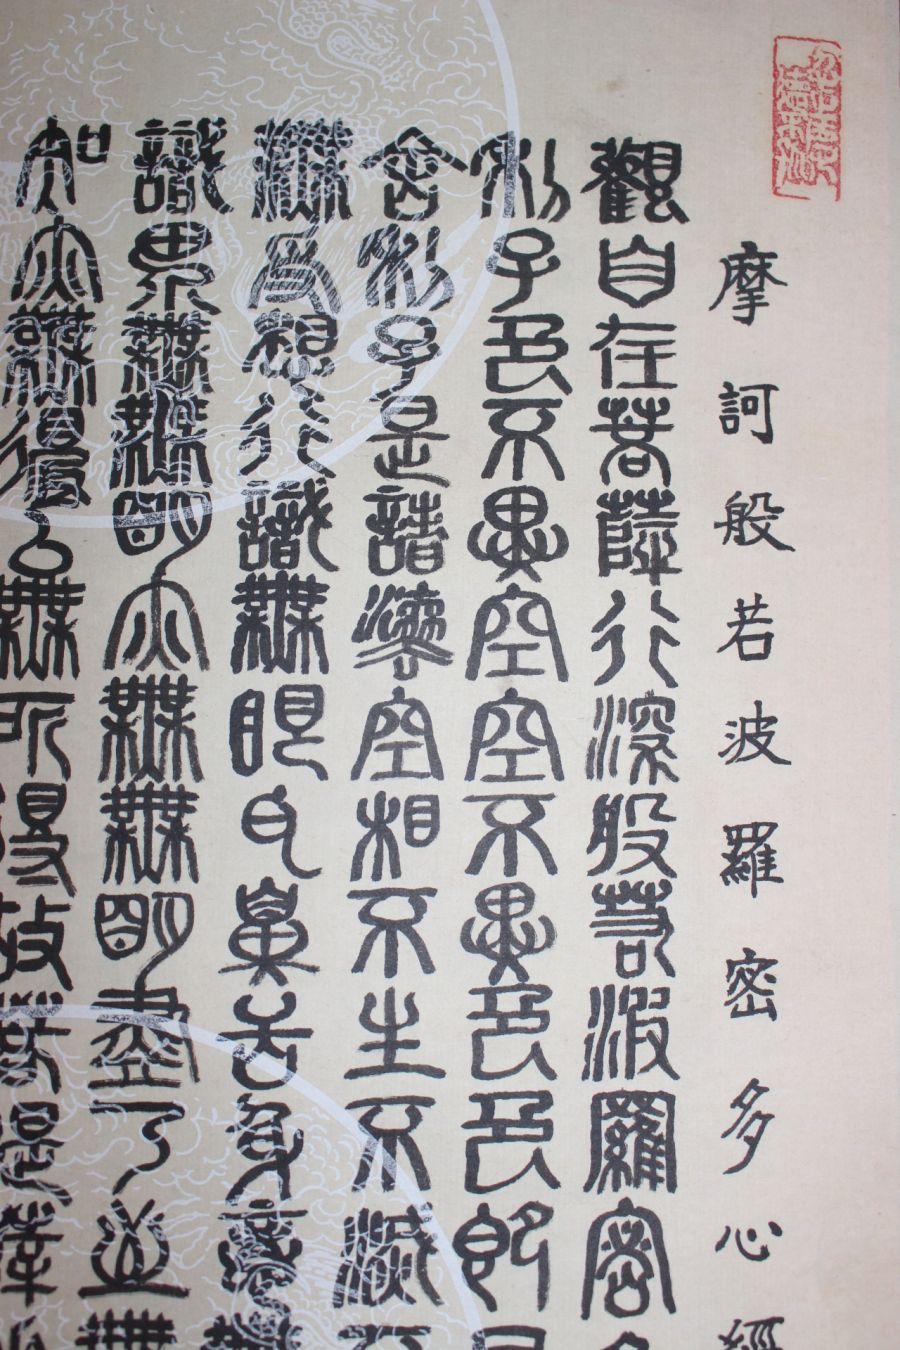 摩訶般若波羅密多心經
觀自在菩薩行深般若波羅密
利子色不異空空不異色色即
舍利子是諸灋空相不生不滅
無受想行識無眼耳鼻舌身意
識界無無明亦無無明盡乃至無
知亦無得以無所得故菩提薩